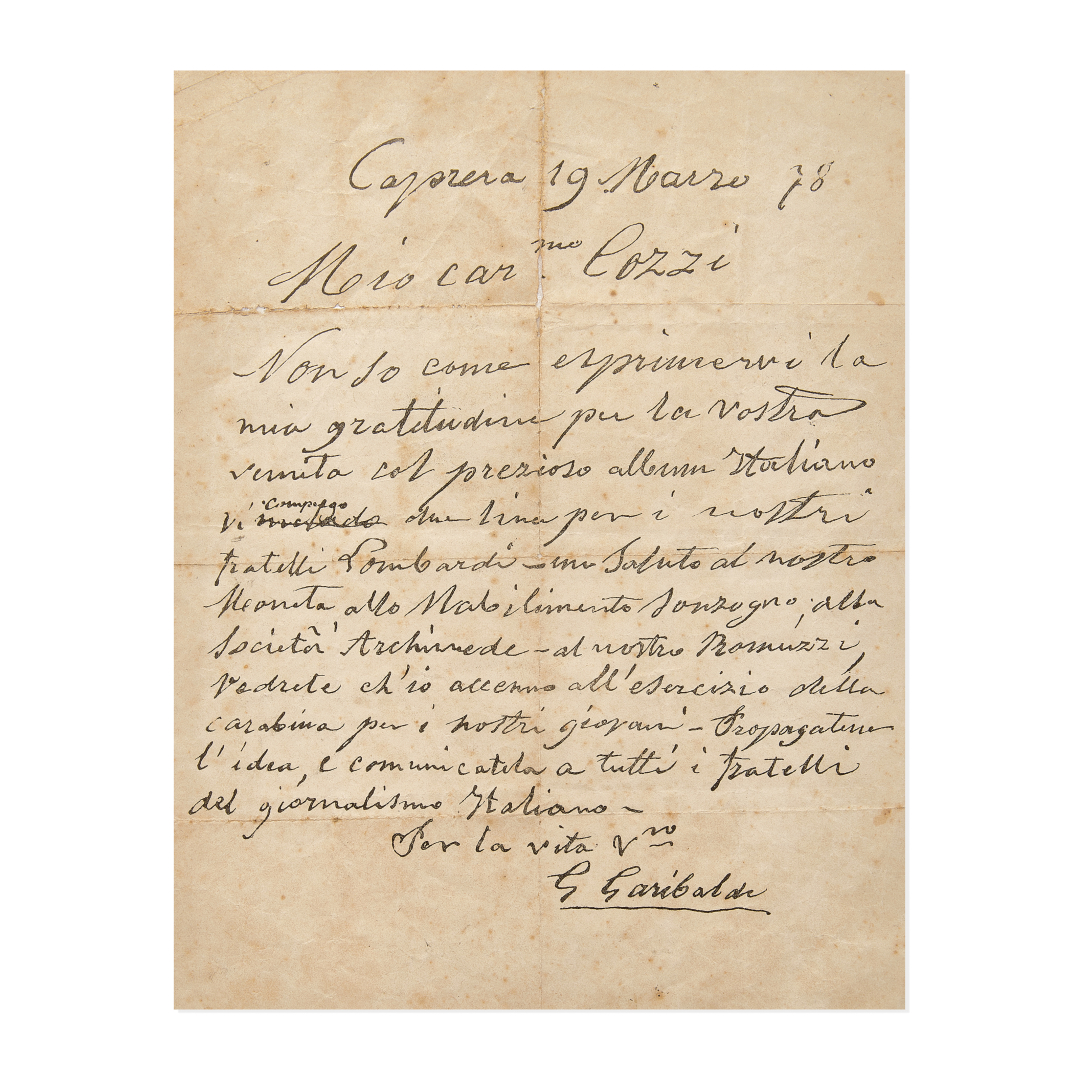 Caprera 19 Marzo 78
Mio car.mo Cozzi
Non so come esprimervi la
mia gratitudine per la vostra
venuta col prezioso album Italiano
Vi compiego due linee per i nostri
fratelli Lombardi - un saluto al nostro
Moneta allo Stabilimento Sonzogno, alla
Società Archimede - al nostro Romuzzi,
Vedrete ch'io accenno all'esercizio della
carabina per i nostri giovani - Propagatene
l'idea, e comunicatela a tutti i fratelli
del giornalismo Italiano -
Per la vita Vro
G Garibaldi